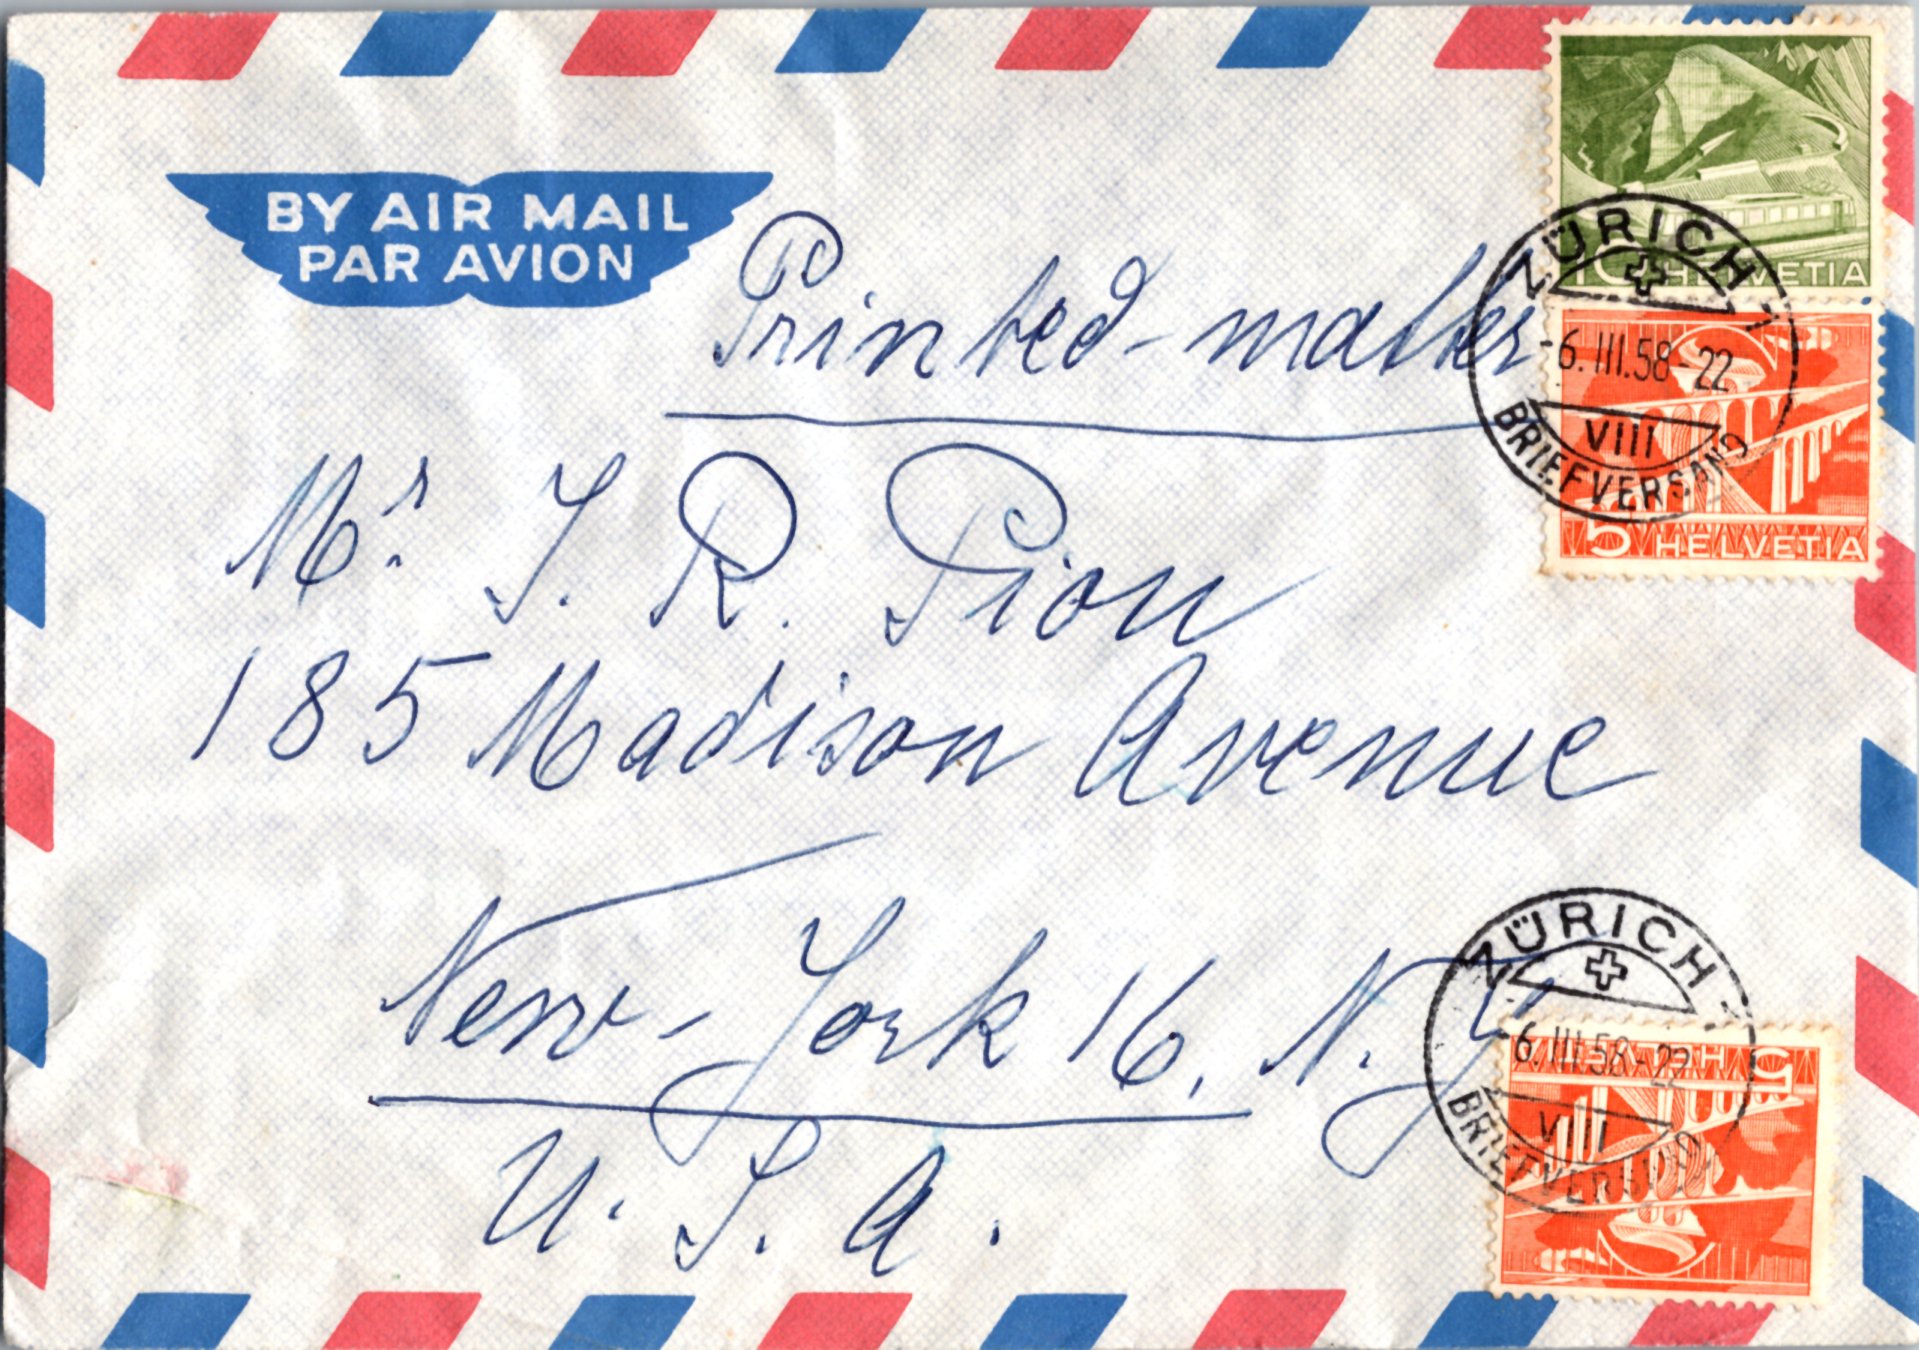 BY AIR MAIL
PAR AVION
Printed-matter
Mr. J. R. Pion
185 Madison Avenue
New-York 16, N.Y.
U.S.A.
10 HELVETIA
ZÜRICH 1
-6.III.58-22
VIII
BRIEFVERSAND
5 HELVETIA
ZÜRICH 1
-6.III.58-22
VIII
BRIEFVERSAND
5 HELVETIA